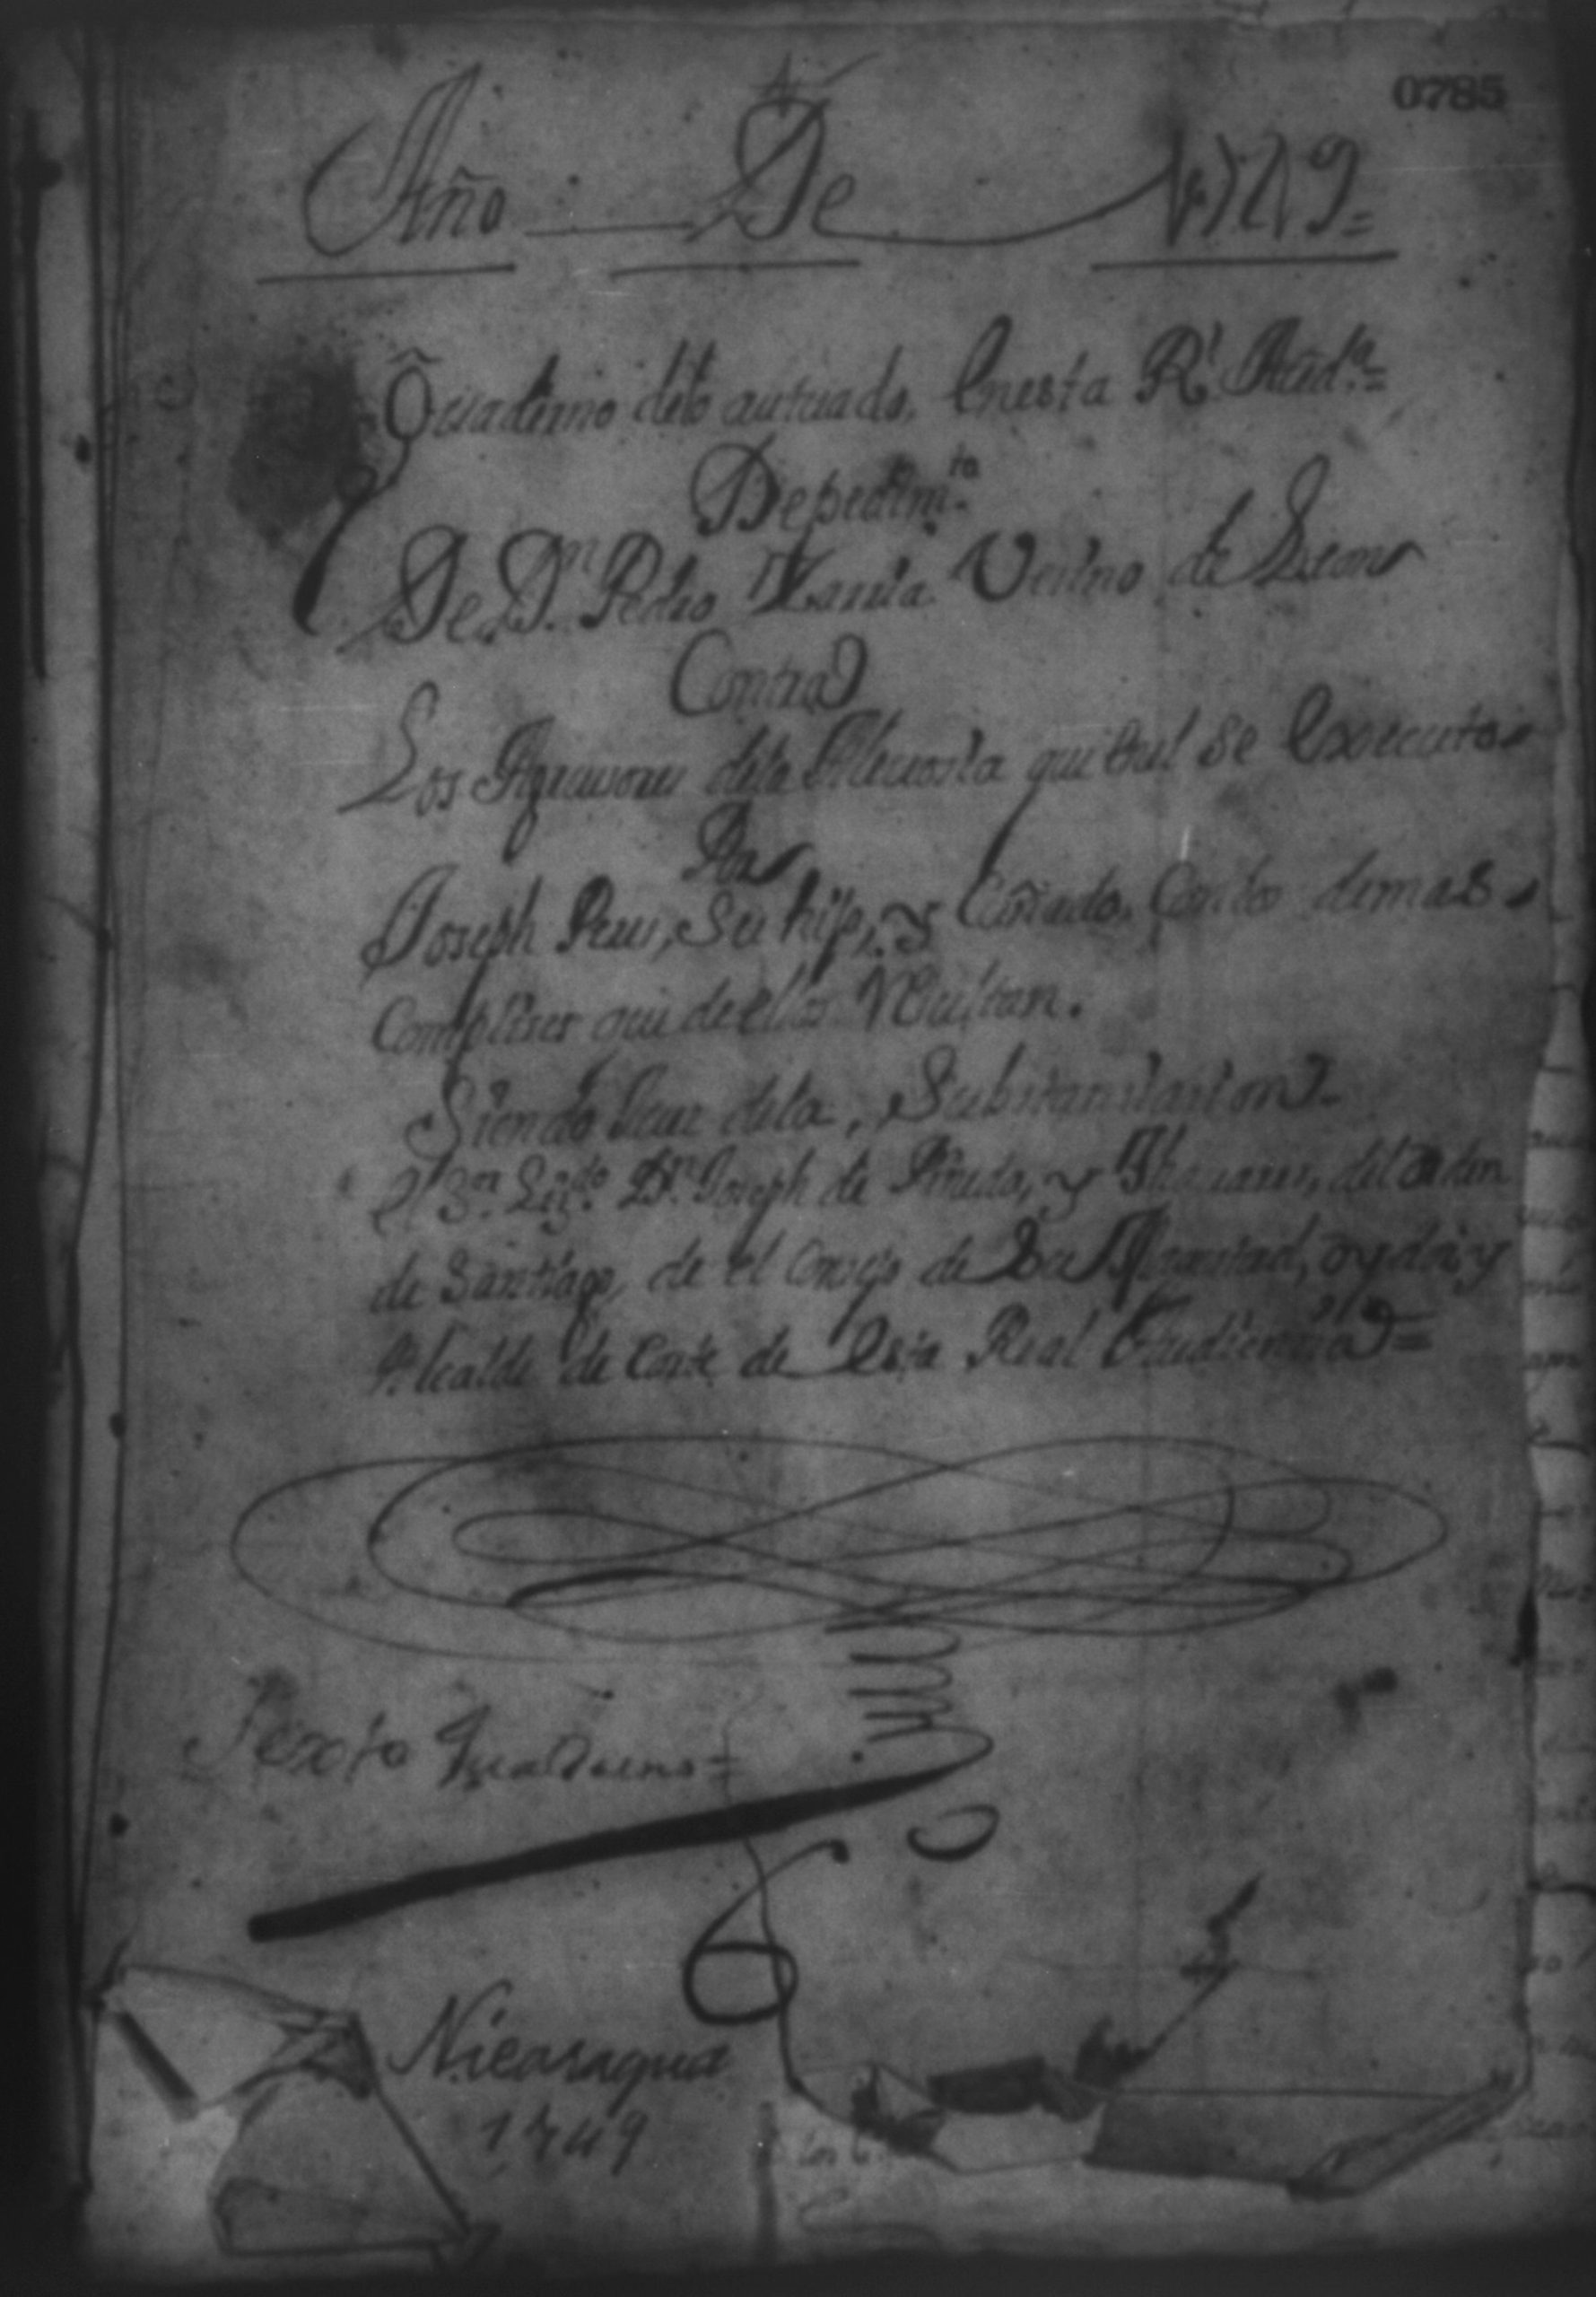 0785
Año De 1749
Quaderno delo autuado, Enesta Rl. Aud.a
Depedim.to
De Dn. Pedro Vecino de Leon
Contra
Los Agresores dela que enel se Executo
Por
Joseph Su hijo, y Cuñado, Conlos demas
Complises que de ellos Resultan.
Siendo Juez dela, Substanciacion
El Sr. Liz.do Dn. Joseph de Pineda, y del Orden
de Santiago, de el Consejo de Su Magestad, oydor, y
Alcalde de Corte de Esta Real Audiencia
Sexto Quaderno
6
Nicaragua
1749